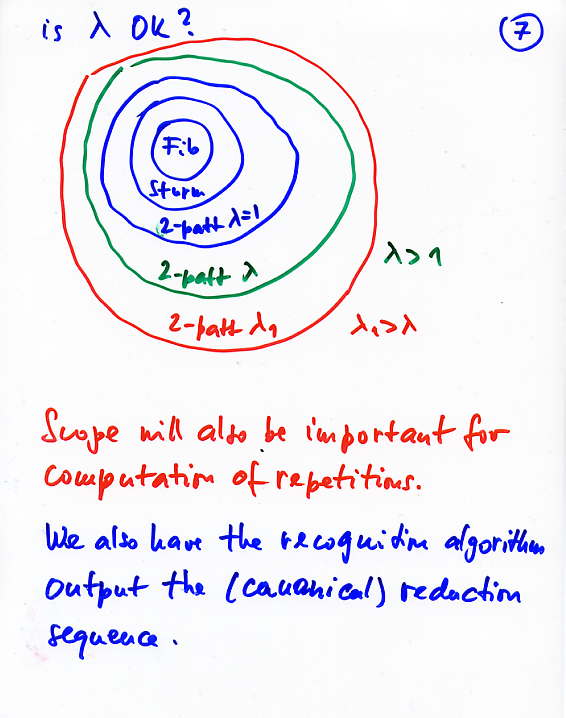 is λ OK?
7
Fib
Sturm
2-patt λ=1
2-patt λ
λ>1
2-patt λ₁
λ₁>λ
Scope will also be important for
computation of repetitions.
We also have the recognition algorithm
output the (canonical) reduction
sequence.